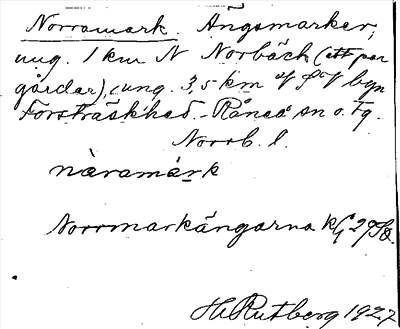 Norramark. Ängsmarker,
ung. 1 km N Norbäck (ett par
gårdar), ung. 3,5 km V S V byn
Forsträskhed. Råneå sn o. Fg.
Norrb. l.
nàramárk
Norrmarkängarna kG
H. Rutberg 1927